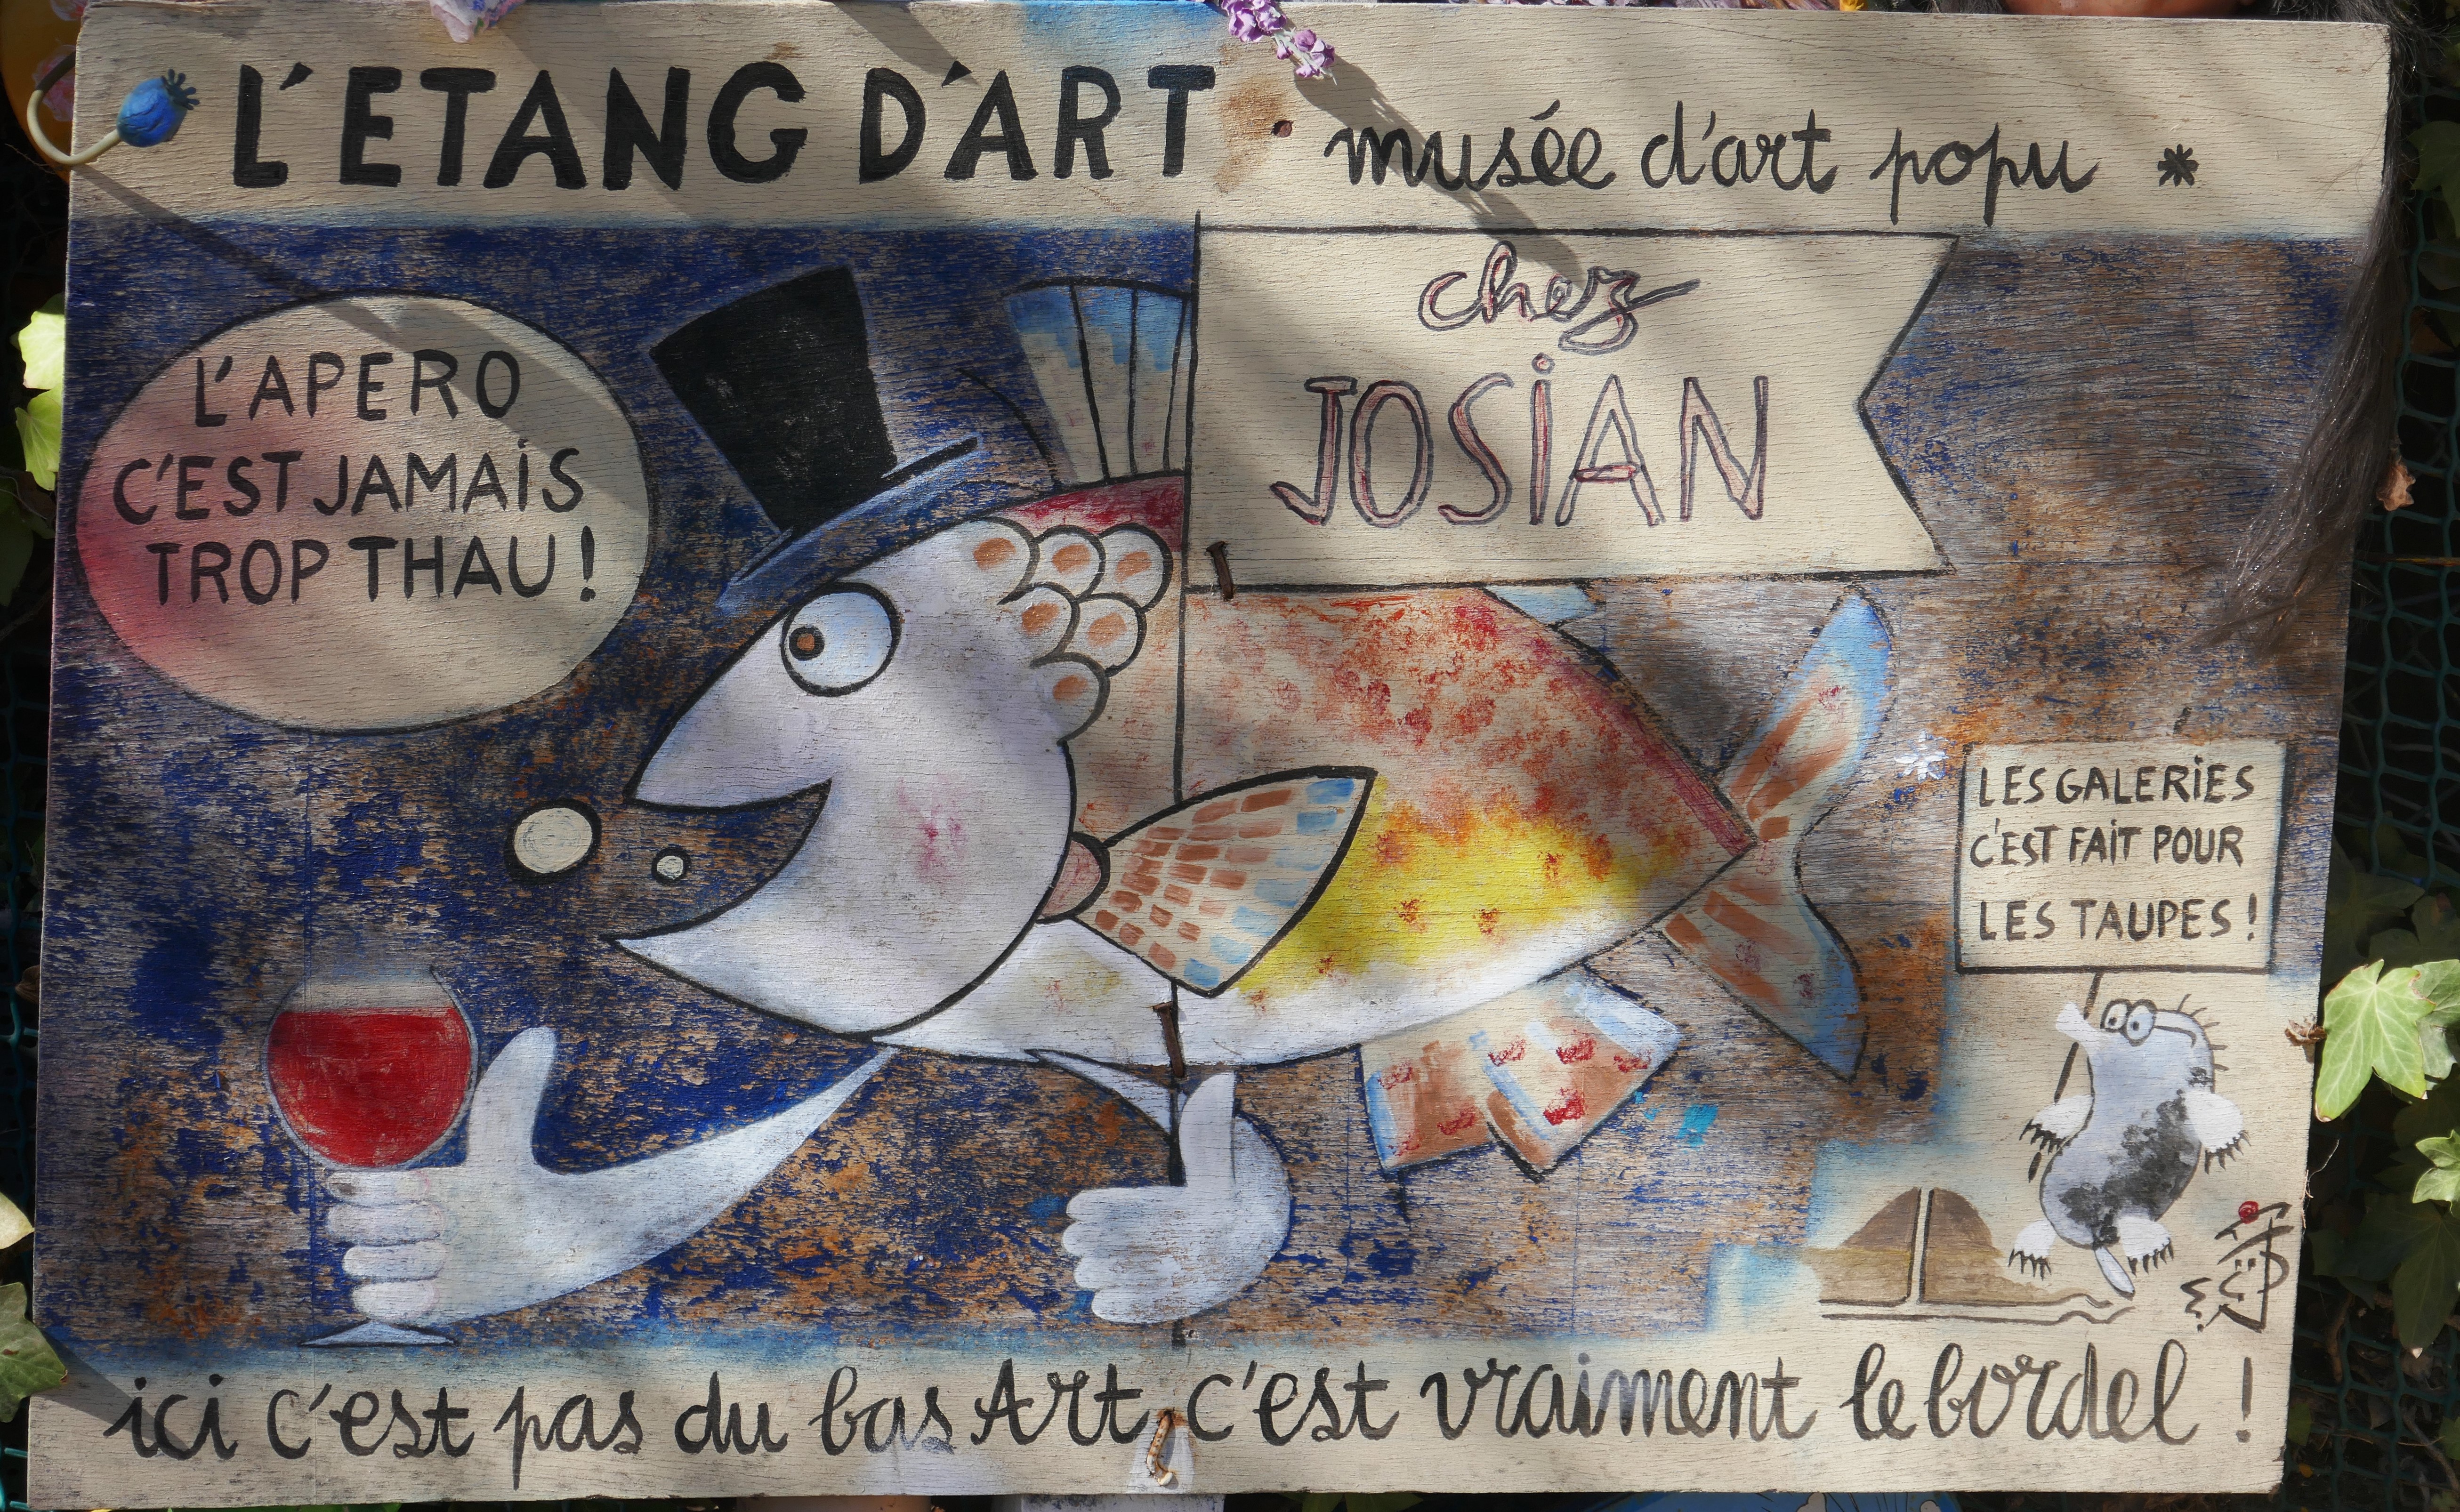 L'ETANG D'ART • musée d'art popu *
chez
JOSiAN
L'APERO
C'EST JAMAiS
TROP THAU !
LES GALERiES
C'EST FAiT POUR
LES TAUPES !
ici c'est pas du bas Art c'est vraiment le bordel !